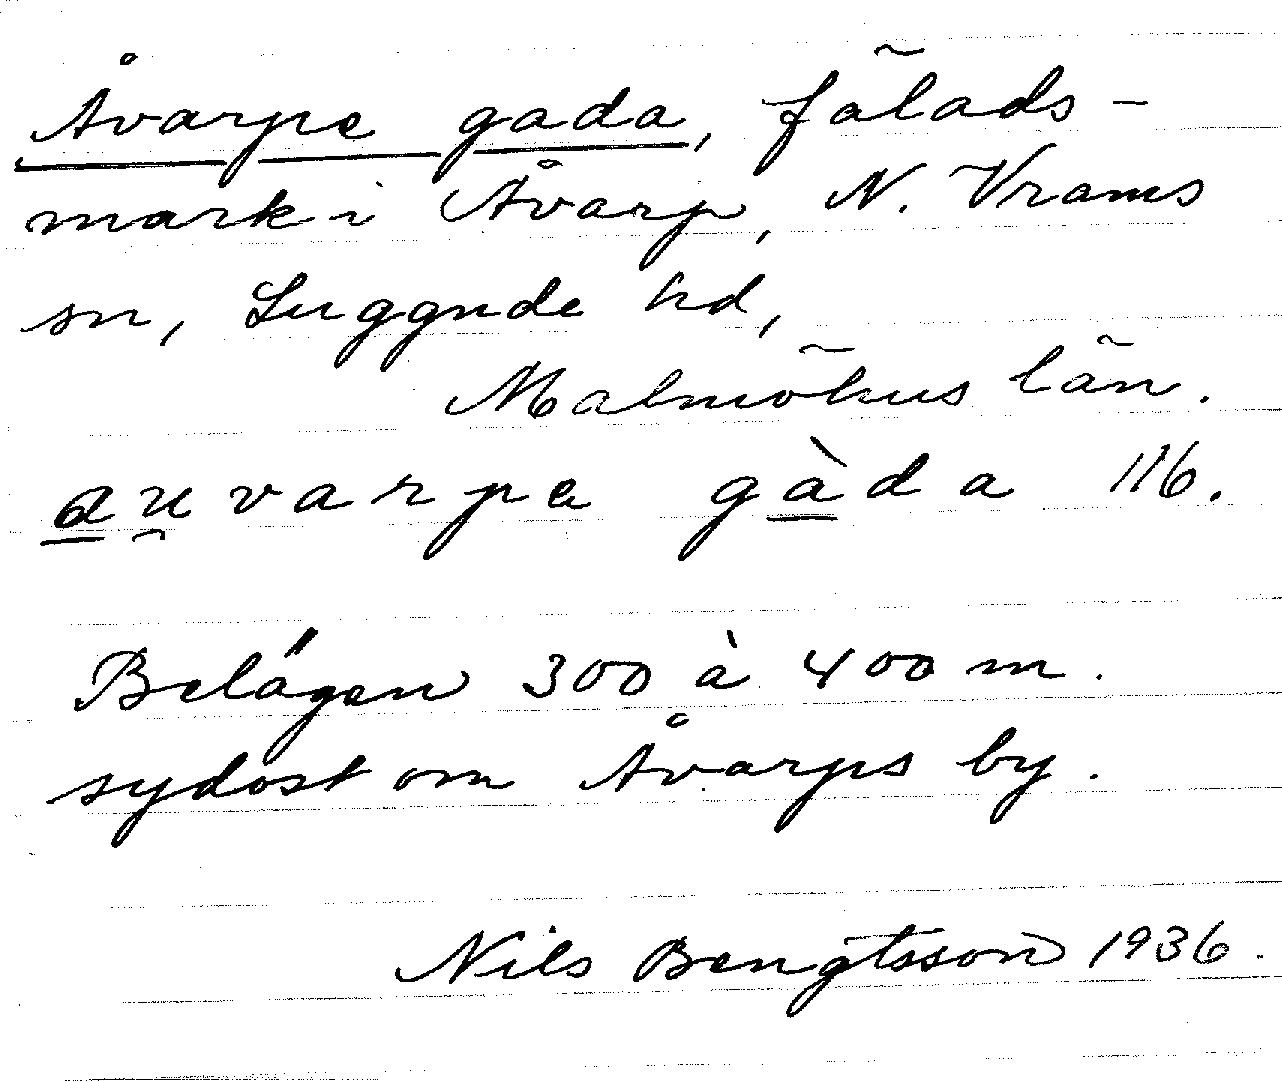 Åvarpe gada, fälads-
mark i Åvarp, N. Vrams
sn, Luggude hd,
Malmöhus län.
au̯varpe gàda 116.
Belägen 300 à 400 m.
sydost om Åvarps by.
Nils Bengtsson 1936.